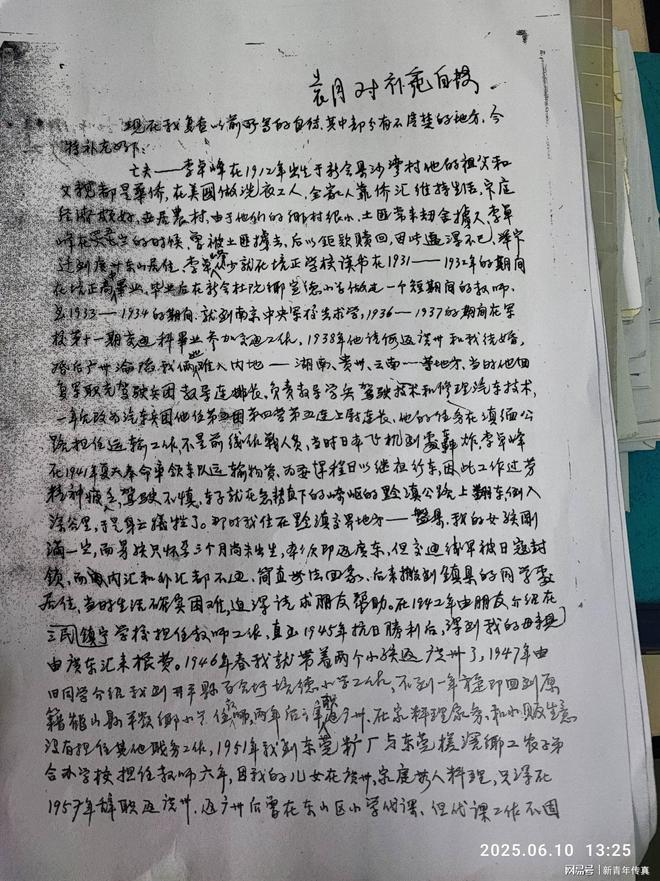 现在我复查以前所写的自传,其中部分有不清楚的地方,今
特补充如下:
亡夫——李卓峰在1912年出生于新会县沙 村他的祖父和
父亲都是华侨,在美國做洗衣工人,全家人靠侨汇维持生活,家庭
经济 好,面居農村,由于他们的乡村很小,土匪常来 掳人李卓
峰在 的时候,曾被土匪掳去,后以钜款赎回,因此逼得不已,举家
迁到广州东山居住,李卓峰少就在培正学校读书在1931——1932年的期间
在培正高 毕业,毕业后在新会杜阮乡 德小学做过一个短期间的教师,
1933——1934的期间,就到南京中央军校去求学,1936—1937的期间在军
校第十一期交通科毕业参加交通工作,1938年他请假返广州和我结婚,
婚后广州沦陷我俩 入内地——湖南,贵州,云南——等地方,当时他
军职充驾驶兵团教导连排长,负责教导学兵驾驶技术和修理汽车技术,
一年后改为汽车兵团他任第 团第四营第五连上尉连长,他的任务在滇缅公
路担任运输工作,不是前线作战人员,当时日本飞机到 轰炸,李卓峰
在1941年夏天奉命率领车队运输物资,为要课程日以继夜行车,因此工作过劳
精神疲乏,驾驶不慎,车子就在 直下的崎岖的黔滇公路上翻车倒入
深谷里,于是身亡牺牲了。那时我住在黔滇交界地方——盤县,我的女孩刚
满一岁,而男孩只怀孕三个月尚未出生,本欲即返广东,但交通线早被日寇封
锁,而 内汇和外汇都不通,简直无法回家,后来搬到镇 的同学家
居住,当时生活确实困难,迫得请求朋友帮助。在1942年由朋友介绍在
三民镇宁学校担任教师工作,直至1945年抗日胜利后,得到我的母亲
由广东汇来旅费。1946年春我就带着两个小孩返广州了,1947年由
旧同学介绍我到开平县百合圩培德小学工作,不到一年 即回到原
籍鹤山县平 乡小学任教师,两年后 返广州,在家料理家务,和小贩生意
没有担任其他职务工作,1951年我到东莞 厂与东莞 滘乡工农子弟
合办学校担任教师六年,因我的儿女在广州,家庭无人料理,只得在
1957年辞职返广州,返广州后曾在东山区小学代课,但代课工作不固
2025.06.10 13:25
网易号 | 新青年传真